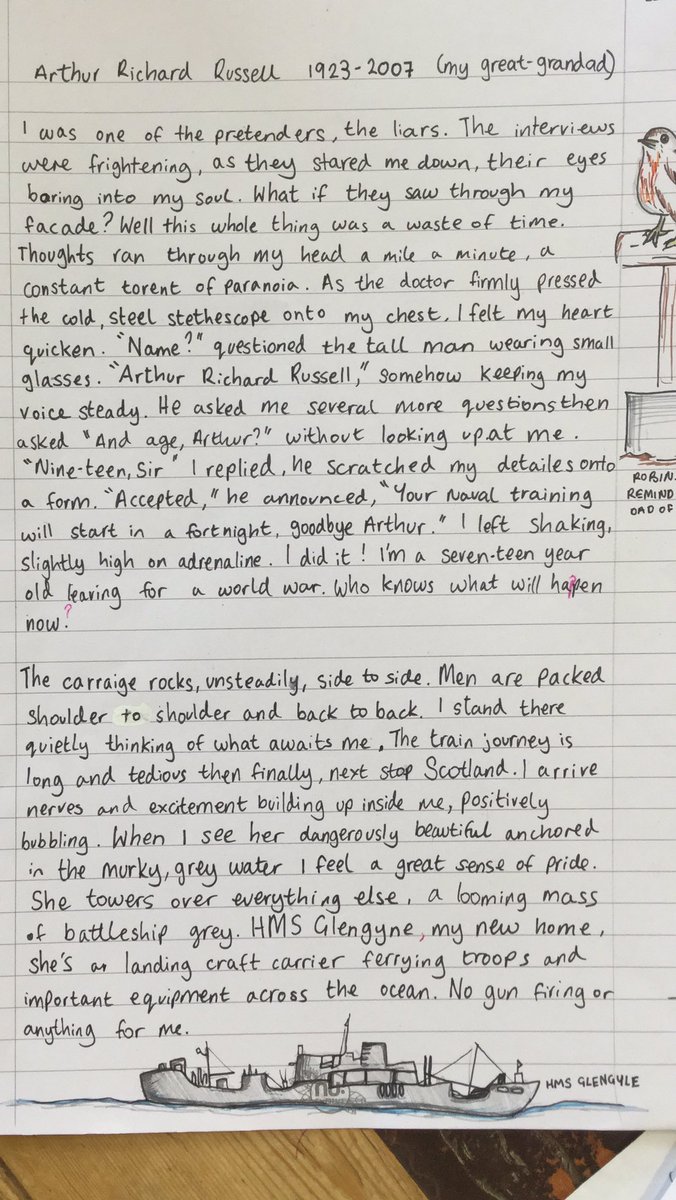 Arthur Richard Russell 1923-2007 (my great-grandad)
I was one of the pretenders, the liars. The interviews
were frightening, as they stared me down, their eyes
baring into my soul. What if they saw through my
facade? Well this whole thing was a waste of time.
Thoughts ran through my head a mile a minute, a
constant torent of paranoia. As the doctor firmly pressed
the cold, steel stethescope onto my chest, I felt my heart
quicken. "Name?" questioned the tall man wearing small
glasses. "Arthur Richard Russell," somehow keeping my
voice steady. He asked me several more questions then
asked "And age, Arthur?" without looking up at me.
"Nine-teen, Sir" I replied, he scratched my detailes onto
a form. "Accepted," he announced, "Your Naval training
will start in a fortnight, goodbye Arthur." I left shaking,
slightly high on adrenaline. I did it! I'm a seven-teen year
old leaving for a world war. Who knows what will happen
now?
The carraige rocks, unsteadily, side to side. Men are packed
shoulder to shoulder and back to back. I stand there
quietly thinking of what awaits me. The train journey is
long and tedious then finally, next stop Scotland. I arrive
nerves and excitement building up inside me, positively
bubbling. When I see her dangerously beautiful anchored
in the murky, grey water I feel a great sense of pride.
She towers over everything else, a looming mass
of battleship grey. HMS Glengyne, my new home,
she's a landing craft carrier ferrying troops and
important equipment across the ocean. No gun firing or
anything for me.
HMS GLENGYLE
ROBIN.
REMIND
DAD OF